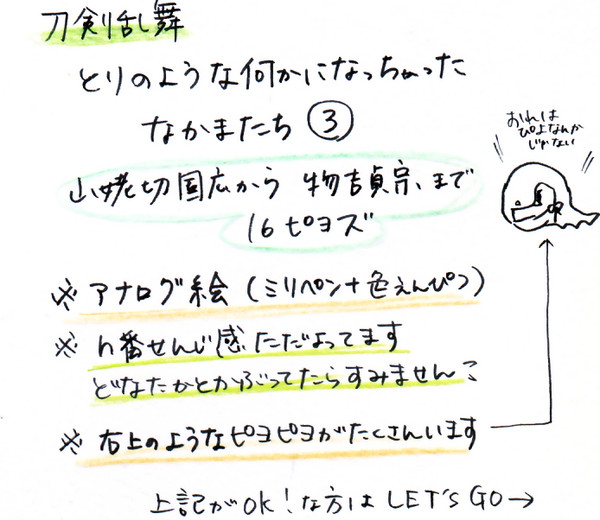 刀剣乱舞
とりのような何かになっちゃった
なかまたち③
山姥切国広から 物吉貞宗まで
16ピヨズ
おれは
ぴよなんか
じゃない
※アナログ絵(ミリペン+色えんぴつ)
※n番せんじ感ただよってます
どなたかとかぶってたらすみません
※右上のようなピヨピヨがたくさんいます
上記がOK!な方は LET'S GO→